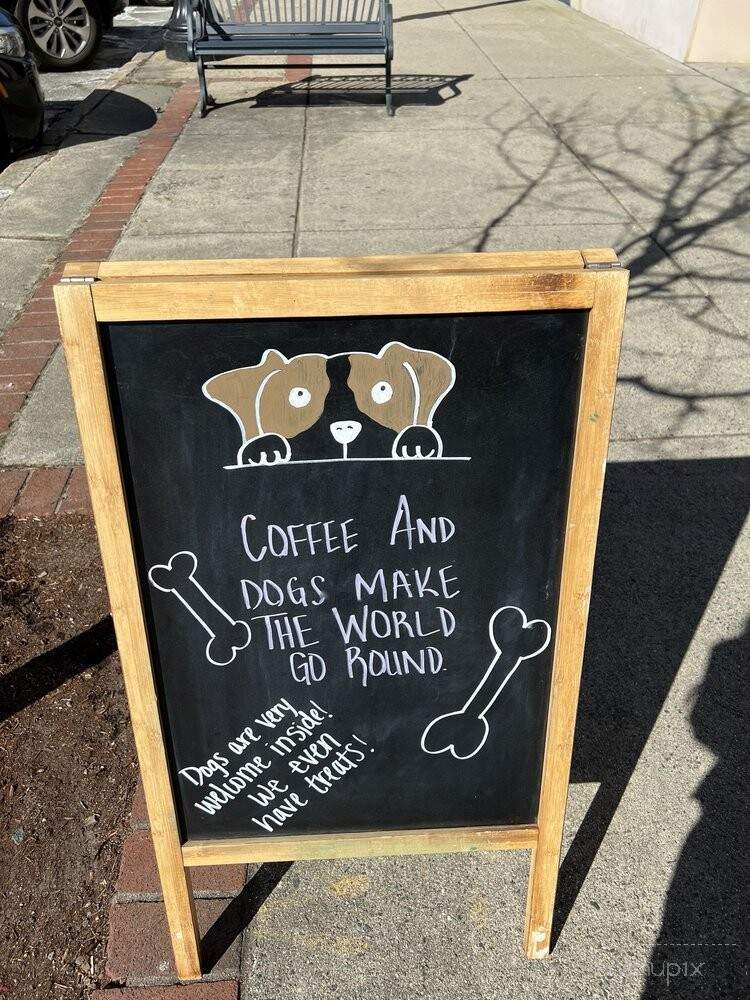 COFFEE AND
DOGS MAKE
THE WORLD
GO ROUND.
Dogs are very
welcome inside!
We even
have treats!